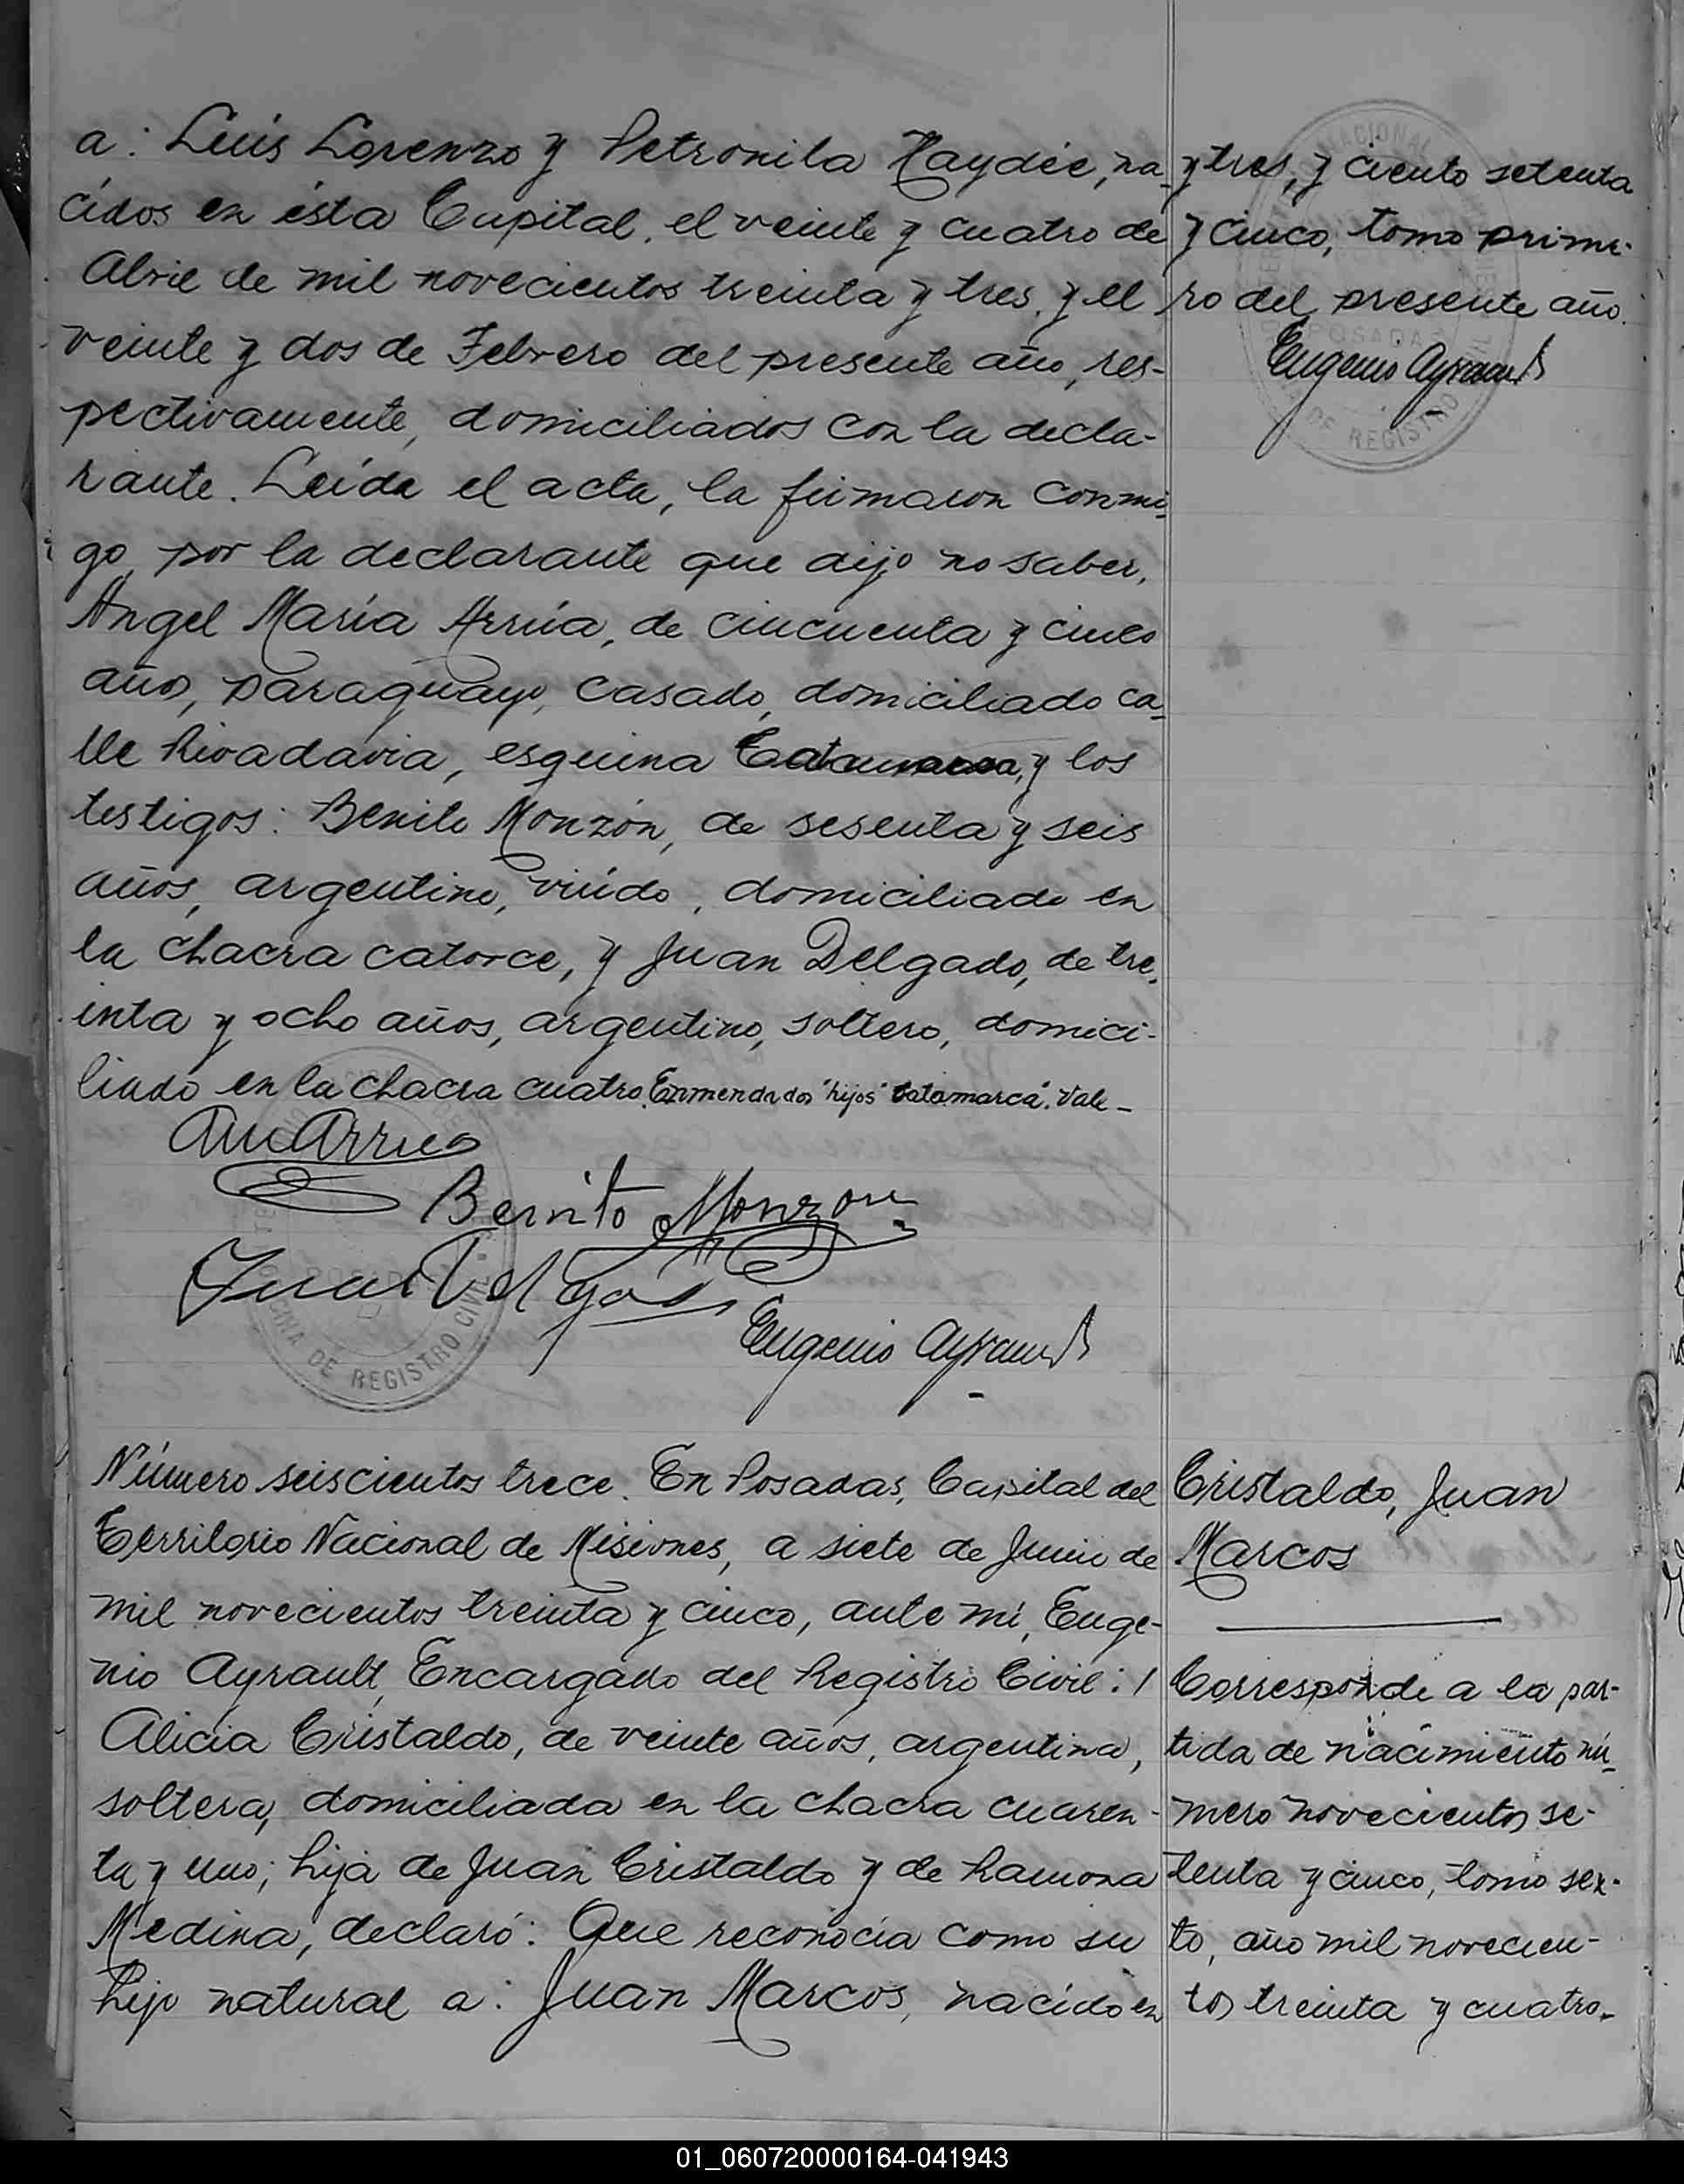 a: Luis Lorenzo y Petronila Haydée, na-
cidos en ésta Capital, el veinte y cuatro de
Abril de mil novecientos treinta y tres, y el
veinte y dos de Febrero del presente año, res-
pectivamente, domiciliados con la decla-
rante. Leída el acta, la firmaron conmi-
go, por la declarante que dijo no saber,
Angel María Arrúa, de cincuenta y cinco
años, paraguayo, casado, domiciliado ca-
lle Rivadavia, esquina Catamarca, y los
testigos: Benito Monzón, de sesenta y seis
años, argentino, viúdo, domiciliado en
la chacra catorce, y Juan Delgado, de tre-
inta y ocho años, argentino, soltero, domici-
liado en la chacra cuatro. Enmendados "hijos" "Catamarca". Vale-
y tres, y ciento setenta
y cinco, tomo prime-
ro del presente año.
Eugenio Ayrault
NACIONAL
POSADAS
DE REGISTRO CIVIL
Arrua
Benito Monzon
Juan Delgado
Eugenio Ayrault
POSADAS
OFICINA DE REGISTRO CIVIL
Número seiscientos trece. En Posadas, Capital del
Territorio Nacional de Misiones, a siete de Junio de
mil novecientos treinta y cinco, ante mí, Euge-
nio Ayrault, Encargado del Registro Civil: /
Alicia Cristaldo, de veinte años, argentina,
soltera, domiciliada en la chacra cuaren-
ta y uno; hija de Juan Cristaldo y de Ramona
Medina, declaró: Que reconocía como su
hijo natural a: Juan Marcos, nacido en
Cristaldo, Juan
Marcos
Corresponde a la par-
tida de nacimiento nú-
mero novecientos se-
tenta y cinco, tomo sex-
to, año mil novecien-
tos treinta y cuatro.
01_060720000164-041943